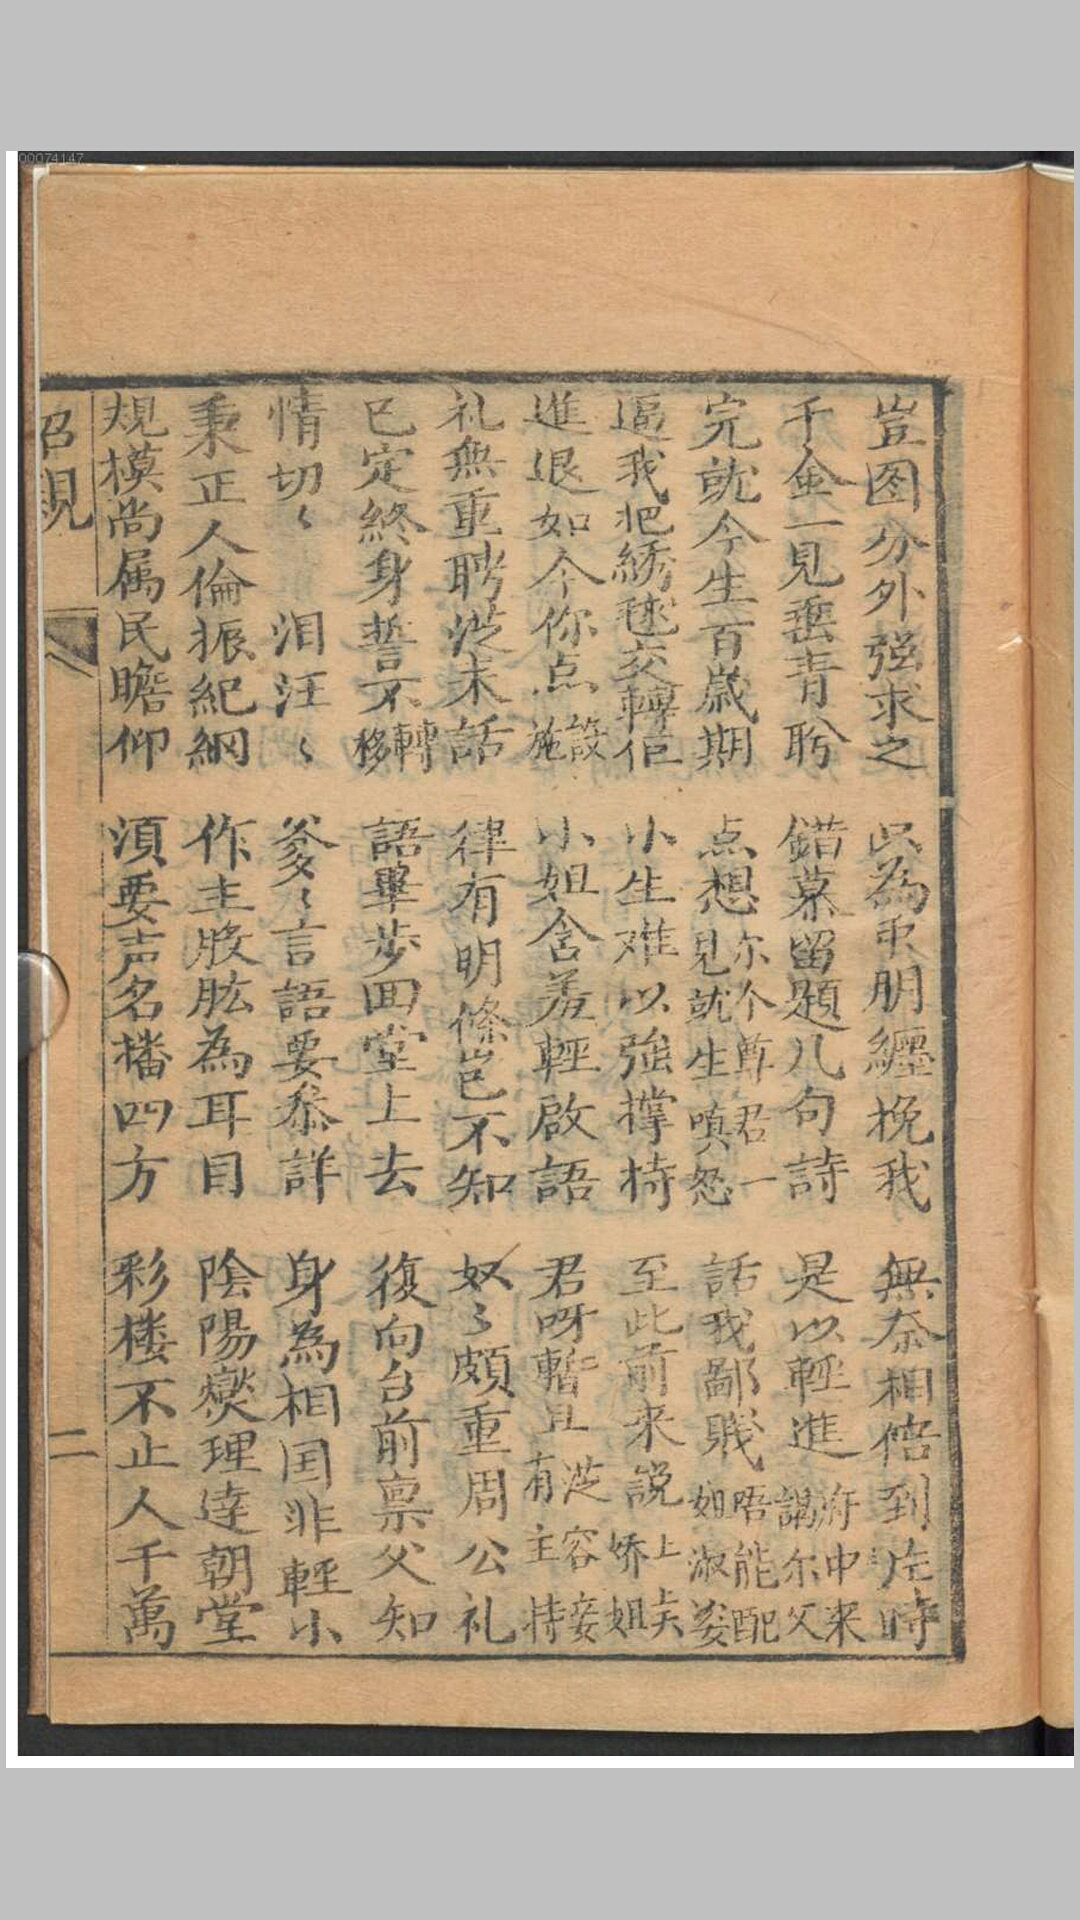 00074147
豈图分外强求之 只為衆朋纏挽我 無奈相偕到此時
千金一見垂青盼 錯慕留題八句詩 是以輕進府中来謁尔父
完就今生百歲期 点想尔个尊君一見就生嗔怒 話我鄙賎唔能配如淑姿
逼我把綉毬交轉佢 小生难以強撑持 至此前来說上矣娇姐
進退如今你点設施 小姐含羞輕啟語 君呀暫且从容妾有主持
礼無重聘从未話 律有明條豈不知 奴〻頗重周公礼
已定終身誓不轉移 語畢步囬堂上去 復向台前禀父知
情切〻 泪汪〻 爹〻言語要叅詳 身為相国非輕小
秉正人倫振紀綱 作主股肱為耳目 陰陽燮理達朝堂
規模尚属民瞻仰 湏要声名播四方 彩楼不止人千萬
招親 二